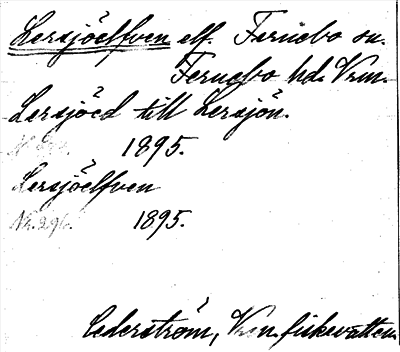 Lersjöelfven elf. Fernebo sn.
Fernebo hd. Vrm.
Lersjöed till Lersjön.
1895.
Lersjöelfven
Nr. 296. 1895.
Cederström, Vrm. fiskevatten